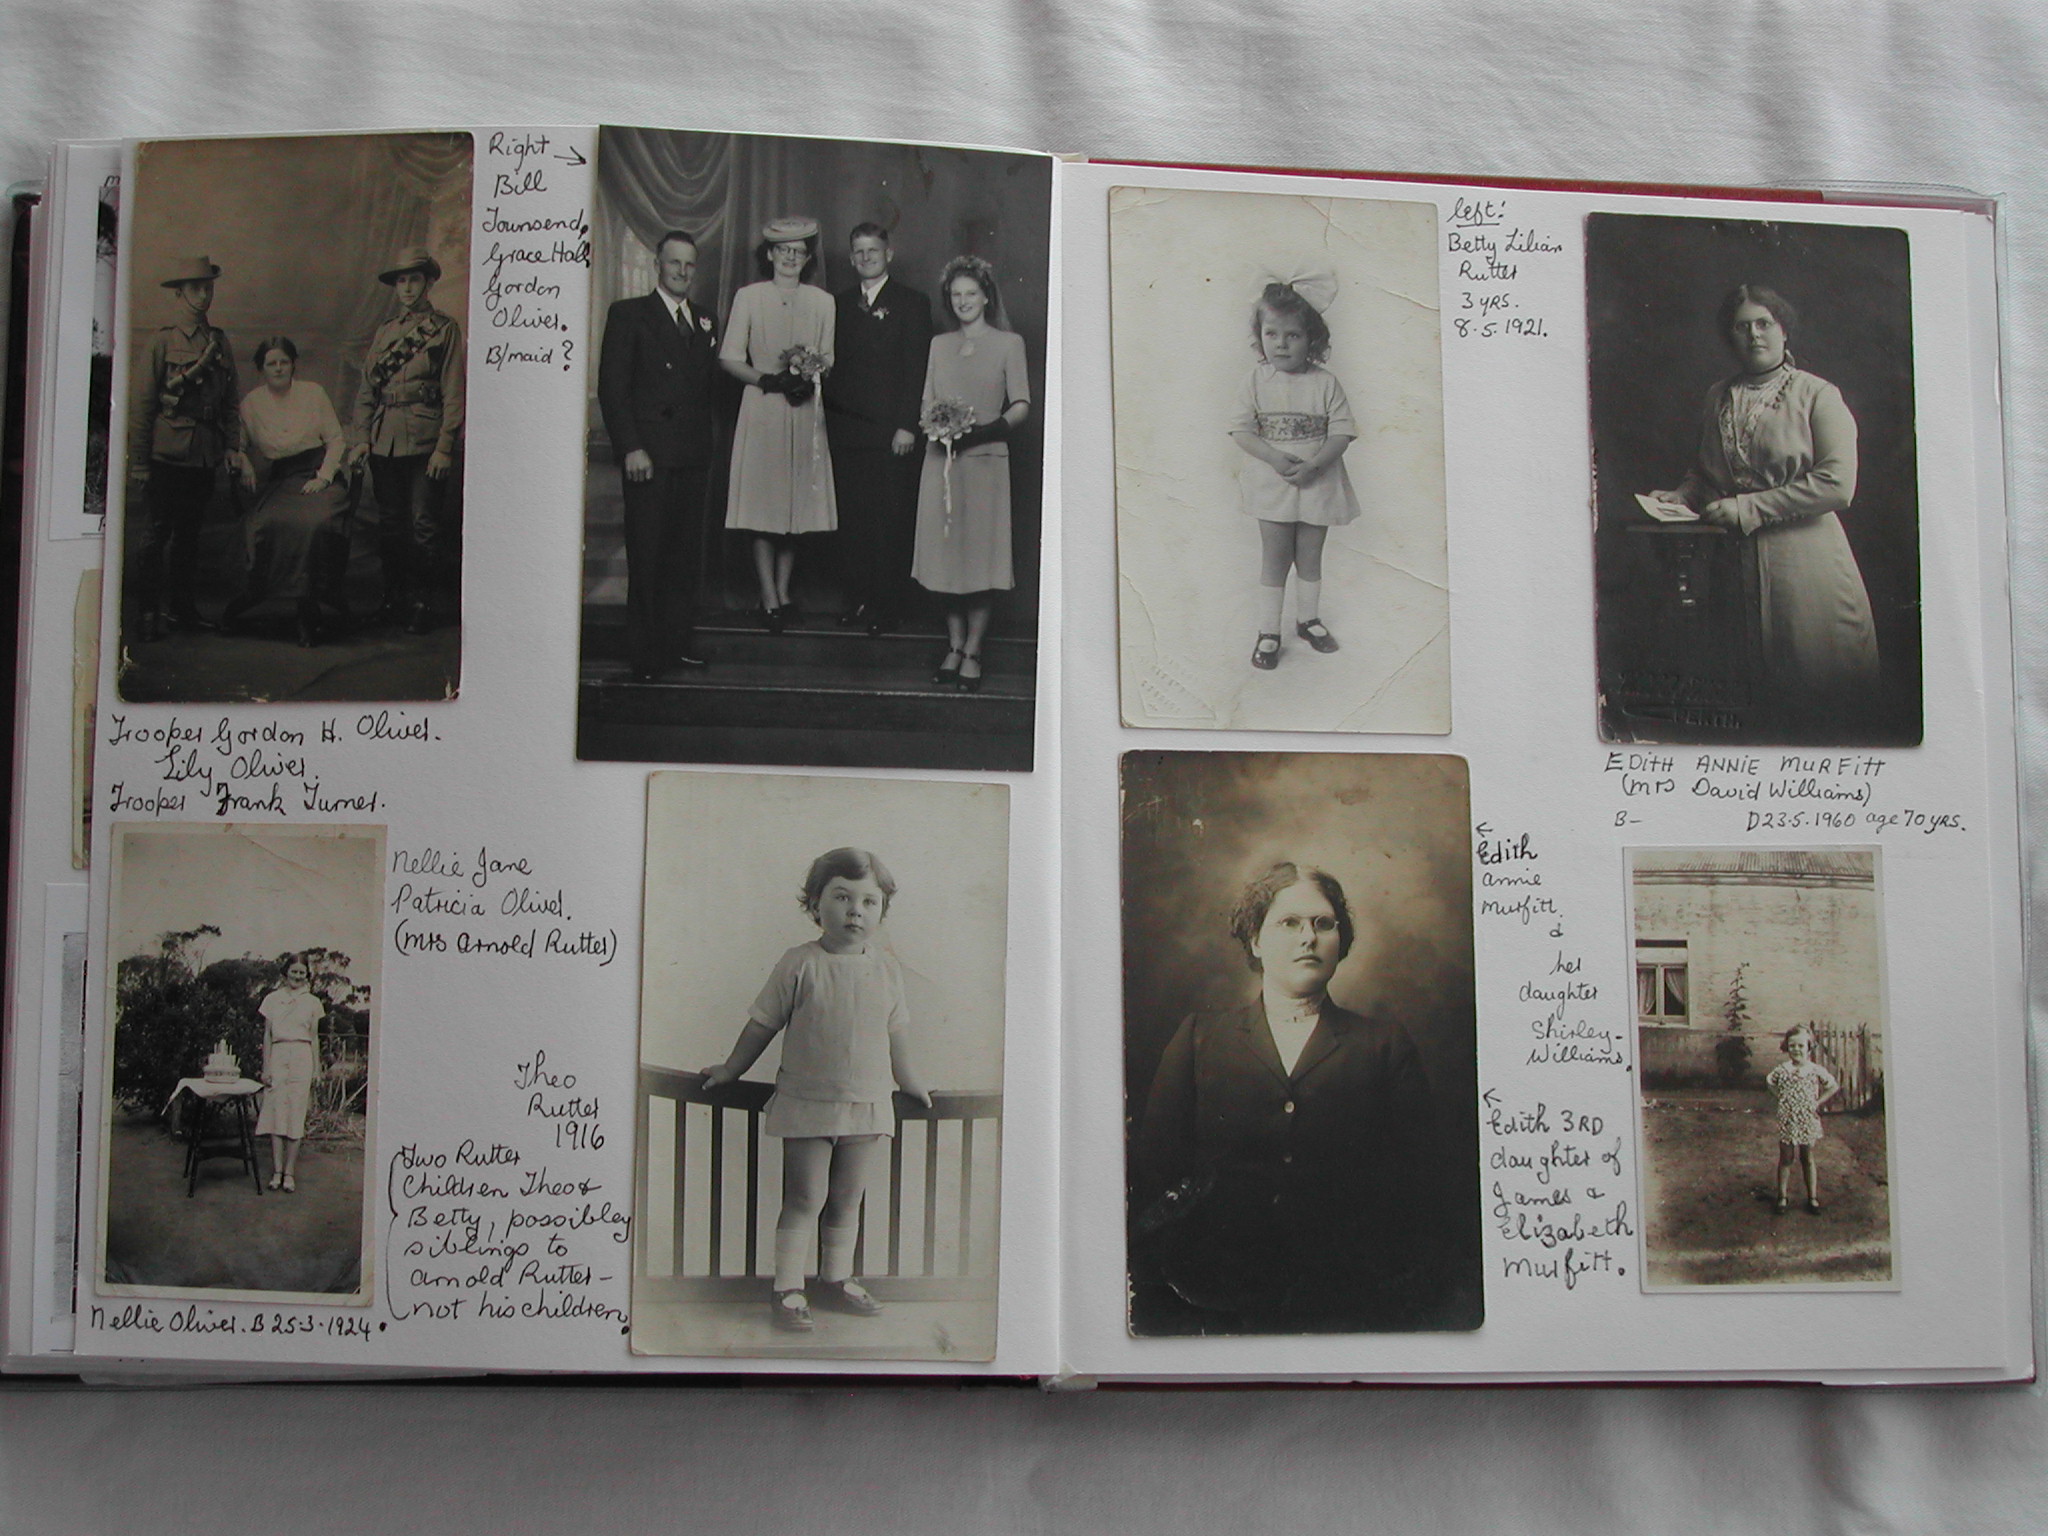 Right →
Bill
Townsend,
Grace Hall,
Gordon
Oliver.
B/maid ?
Trooper Gordon H. Oliver.
Lily Oliver.
Trooper Frank Turner.
Nellie Jane
Patricia Oliver.
(Mrs Arnold Rutter)
Theo
Rutter
1916
Two Rutter
Children Theo &
Betty, possibley
siblings to
Arnold Rutter -
not his children.
Nellie Oliver. B 25.3.1924.
left:
Betty Lilian
Rutter
3 YRS.
8.5.1921.
PERTH.
EDITH ANNIE MURFITT
(Mrs David Williams)
B- D 23.5.1960 age 70 YRS.
←
Edith
Annie
Murfitt.
&
her
daughter
Shirley-
Williams.
←
Edith 3RD
daughter of
James &
Elizabeth
Murfitt.